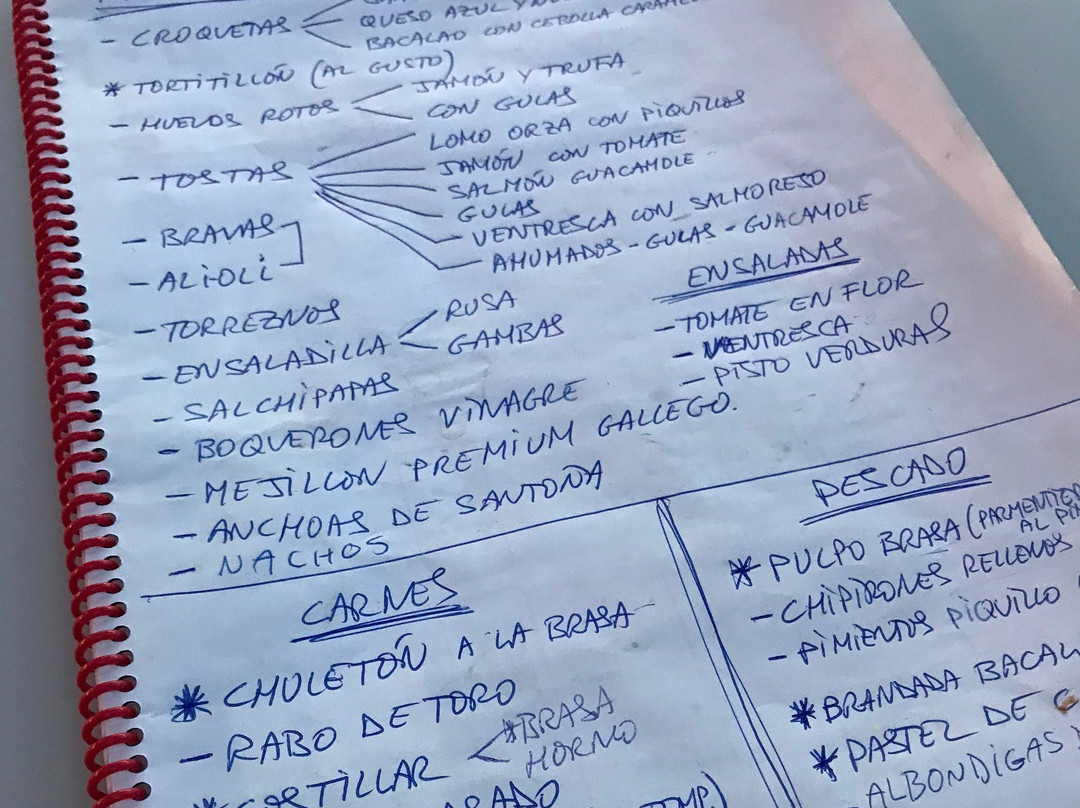 - CROQUETAS
QUESO AZUL Y
BACALAO CON CEBOLLA
* TORTITILLÓN (AL GUSTO)
- HUEVOS ROTOS
JAMÓN Y TRUFA
CON GULAS
- TOSTAS
LOMO ORZA CON PIQUILLOS
JAMÓN CON TOMATE
SALMÓN GUACAMOLE
GULAS
VENTRESCA CON SALMORESO
AHUMADOS - GULAS - GUACAMOLE
- BRAVAS
- ALIOLI
- TORREZNOS
- ENSALADILLA
RUSA
GAMBAS
- SALCHIPAPAS
- BOQUERONES VINAGRE
- MEJILLON PREMIUM GALLEGO.
- ANCHOAS DE SANTOÑA
- NACHOS
ENSALADAS
- TOMATE EN FLOR
- VENTRESCA
- PISTO VERDURAS
CARNES
* CHULETÓN A LA BRASA
- RABO DE TORO
* COSTILLAR
*BRASA
HORNO
PESCADO
* PULPO BRASA (
AL
- CHIPIRONES RELLENOS
- PIMIENTOS PIQUILLO
* BRANDADA
* PASTEL DE
ALBONDIGAS